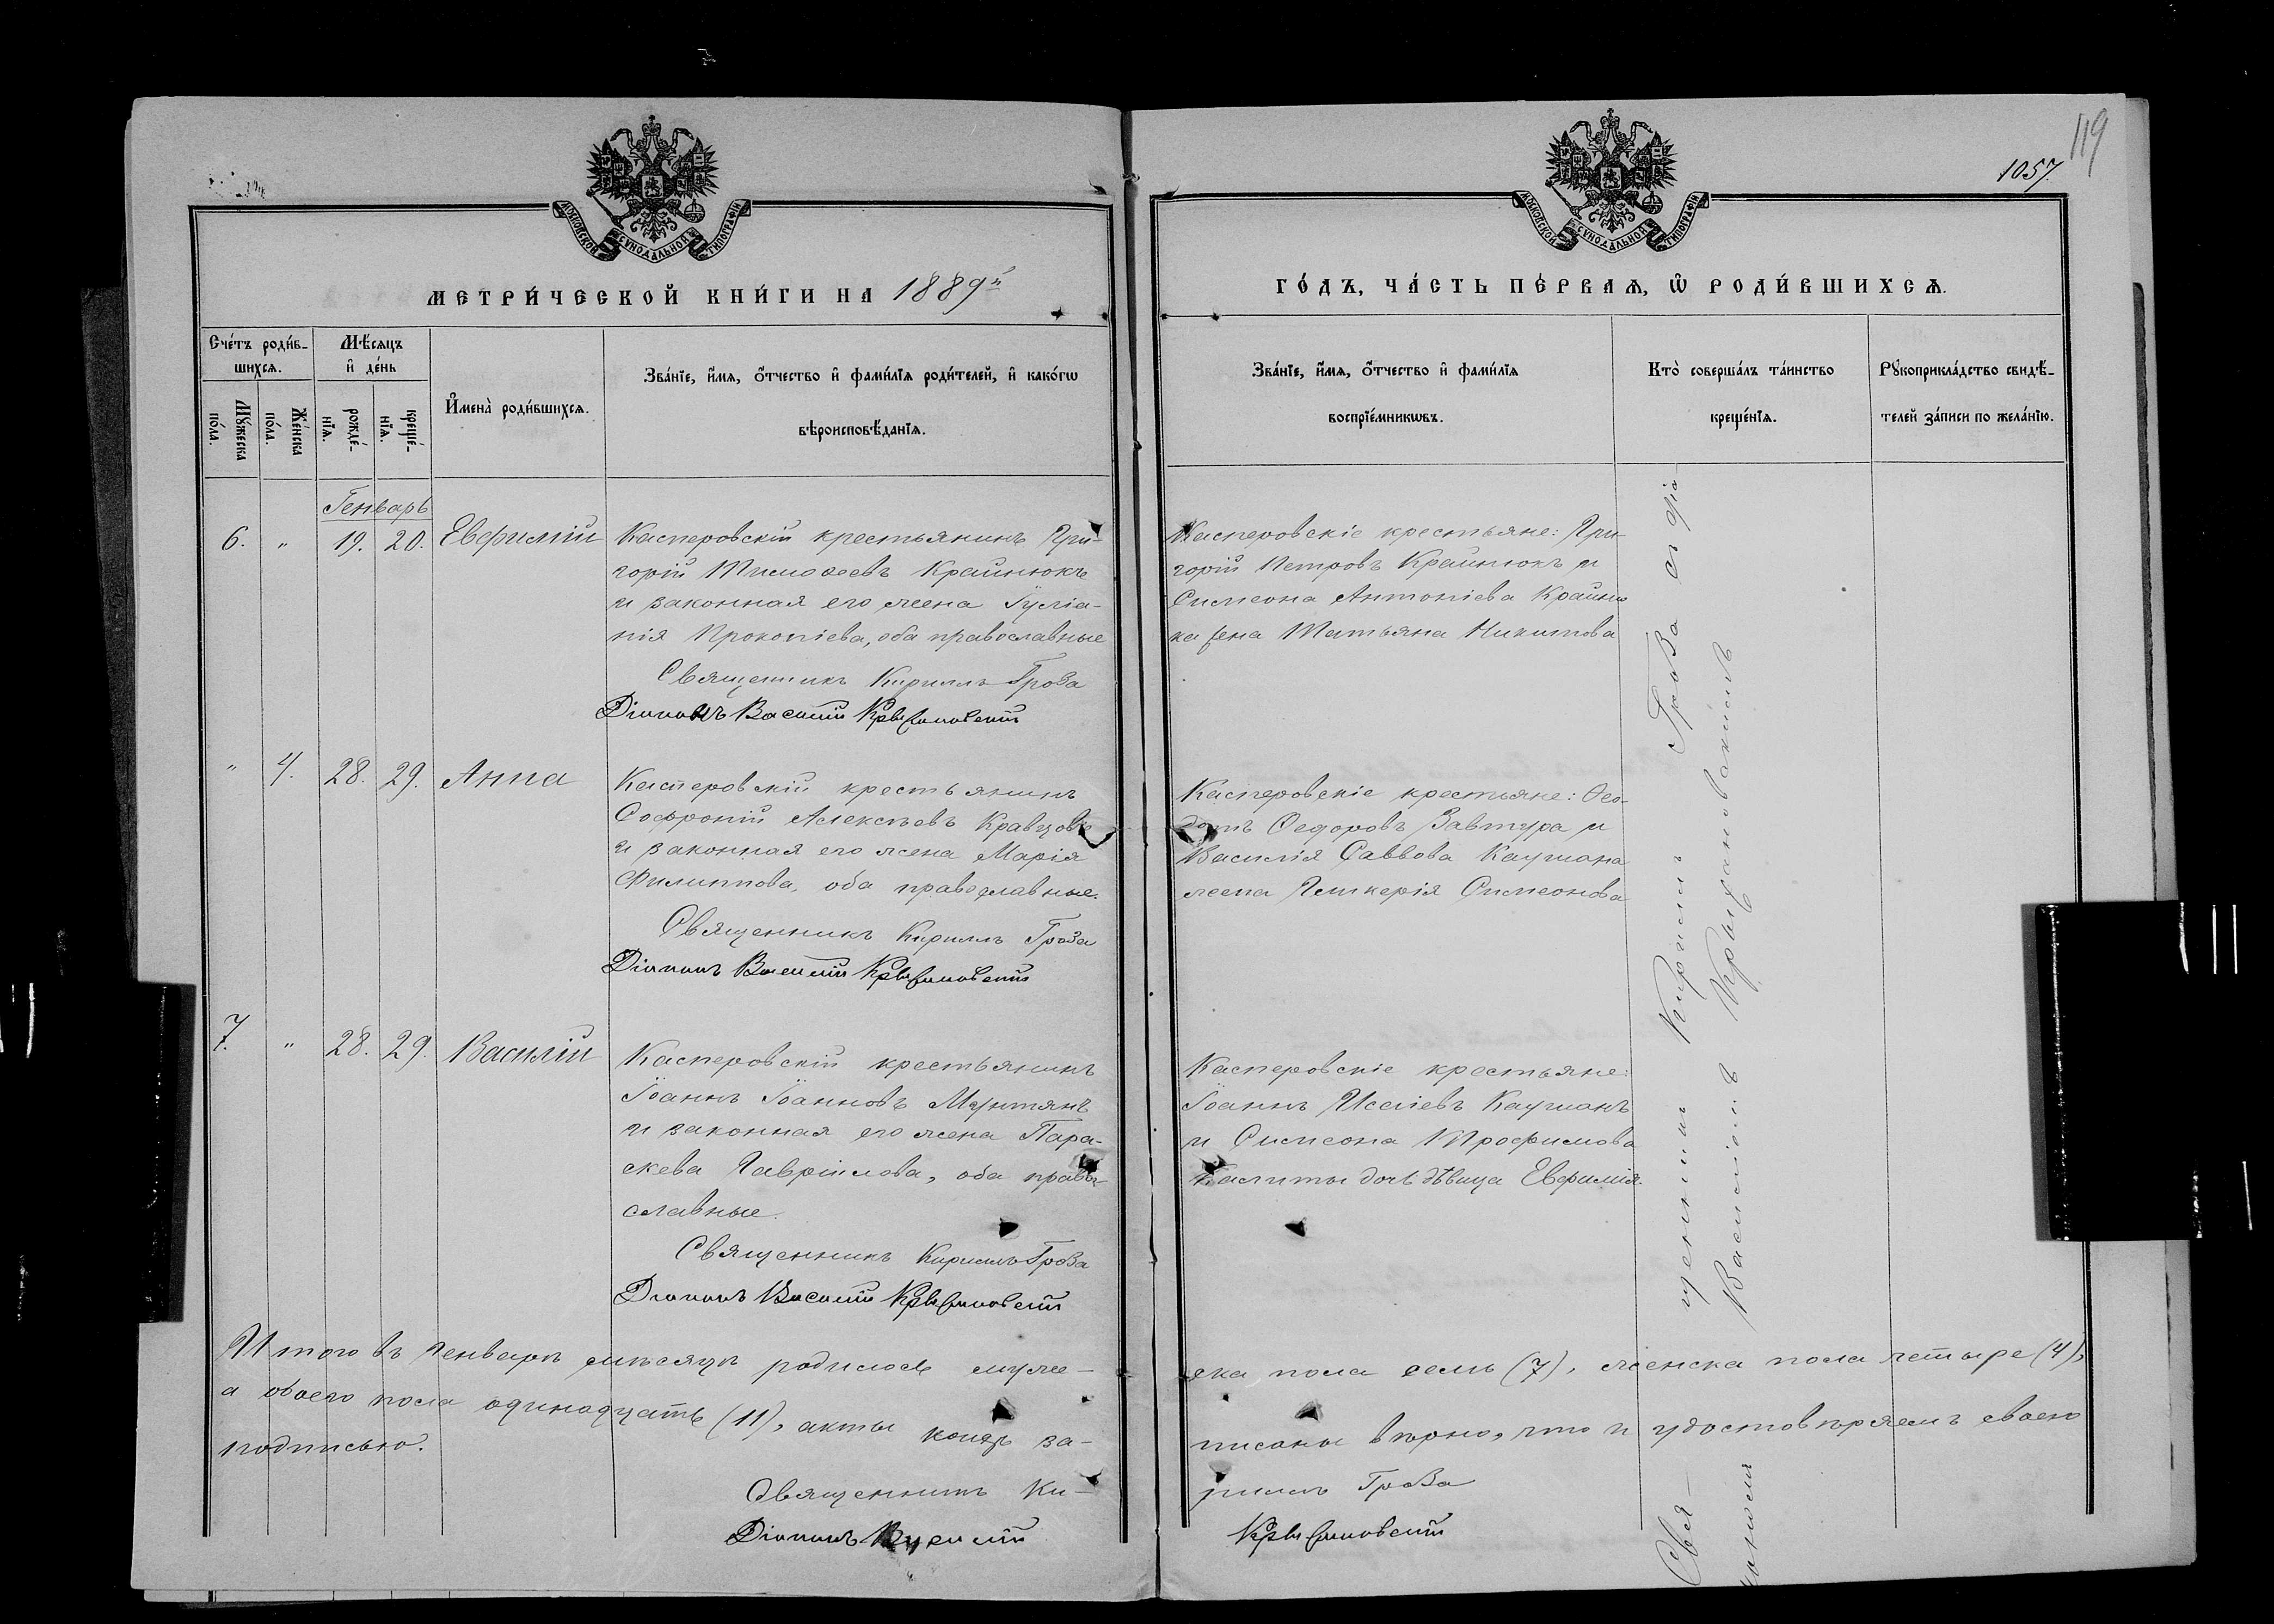 119
1057.
МОСКОВСКОЙ СѴНОДАЛЬНОЙ ТИПОГРАФІИ
МОСКОВСКОЙ СѴНОДАЛЬНОЙ ТИПОГРАФІИ
МЕТРИ́ЧЕСКОЙ КНИ́ГИ НА 1889й
ГО́ДЪ, ЧА́СТЬ ПЕ́РВАѦ, Ѽ РОДИ́ВШИХСѦ.
Сче́тъ роди́в-
шихсѧ.
Мꙋ́жеска по́ла.
Же́нска по́ла.
Мѣ́сѧцъ
и҆ де́нь
рожде́-
нїѧ.
креще́-
нїѧ.
И҆мена̀ роди́вшихсѧ.
Зва́нїе, и҆́мѧ, ѻ҆́тчество и҆ фами́лїѧ роди́телей, и҆ како́гѡ
вѣроисповѣ́данїѧ.
Зва́нїе, и҆́мѧ, ѻ҆́тчество и҆ фами́лїѧ
воспрїе́мникѡвъ.
Кто̀ соверша́лъ та́инство
креще́нїѧ.
Рꙋкоприкла́дство свидѣ́-
телей за́писи по жела́нїю.
Генварь
6. " 19. 20. Евфимій
Касперовскій крестьянинъ Гри-
горій Тимоѳеевъ Крайнюкъ
и законная его жена Іуліа-
нія Прокопіева, оба православные
Священникъ Кириллъ Гроза
Діаконъ Василій Крыжановскій
Касперовскіе крестьяне: Гри-
горій Петровъ Крайнюкъ и
Симеона Антоніева Крайню
ка жена Татьяна Никитова
" 4. 28. 29. Анна
Касперовскій крестьянинъ
Софроній Алексѣевъ Кравцовъ
и законная его жена Марія
Филиппова, оба православные.
Священникъ Кириллъ Гроза
Діаконъ Василій Крыжановскій
Касперовскіе крестьяне: Ѳео-
дотъ Ѳедоровъ Завтура и
Василія Саввова Каушана
жена Гликерія Симеонова
7. " 28. 29. Василій
Касперовскій крестьянинъ
Іоаннъ Іоанновъ Мунтянъ
и законная его жена Пара-
скева Гавріилова, оба право-
славные.
Священникъ Кириллъ Гроза
Діаконъ Василій Крыжановскій
Касперовскіе крестьяне:
Іоаннъ Исаіевъ Каушанъ
и Симеона Трофимова
дочь дѣвица Евфимія.
Свя-
щенникъ Кириллъ Гроза съ діа-
кономъ Василіемъ Крыжановскимъ
Итого въ Генварѣ мѣсяцѣ родилось муже-
ска пола семь (7), женска пола четыре (4),
а обоего пола одинадцать (11), акты коихъ за-
писаны вѣрно, что и удостовѣряемъ своею
подписью.
Священникъ Ки-
риллъ Гроза
Діаконъ Василій
Крыжановскій